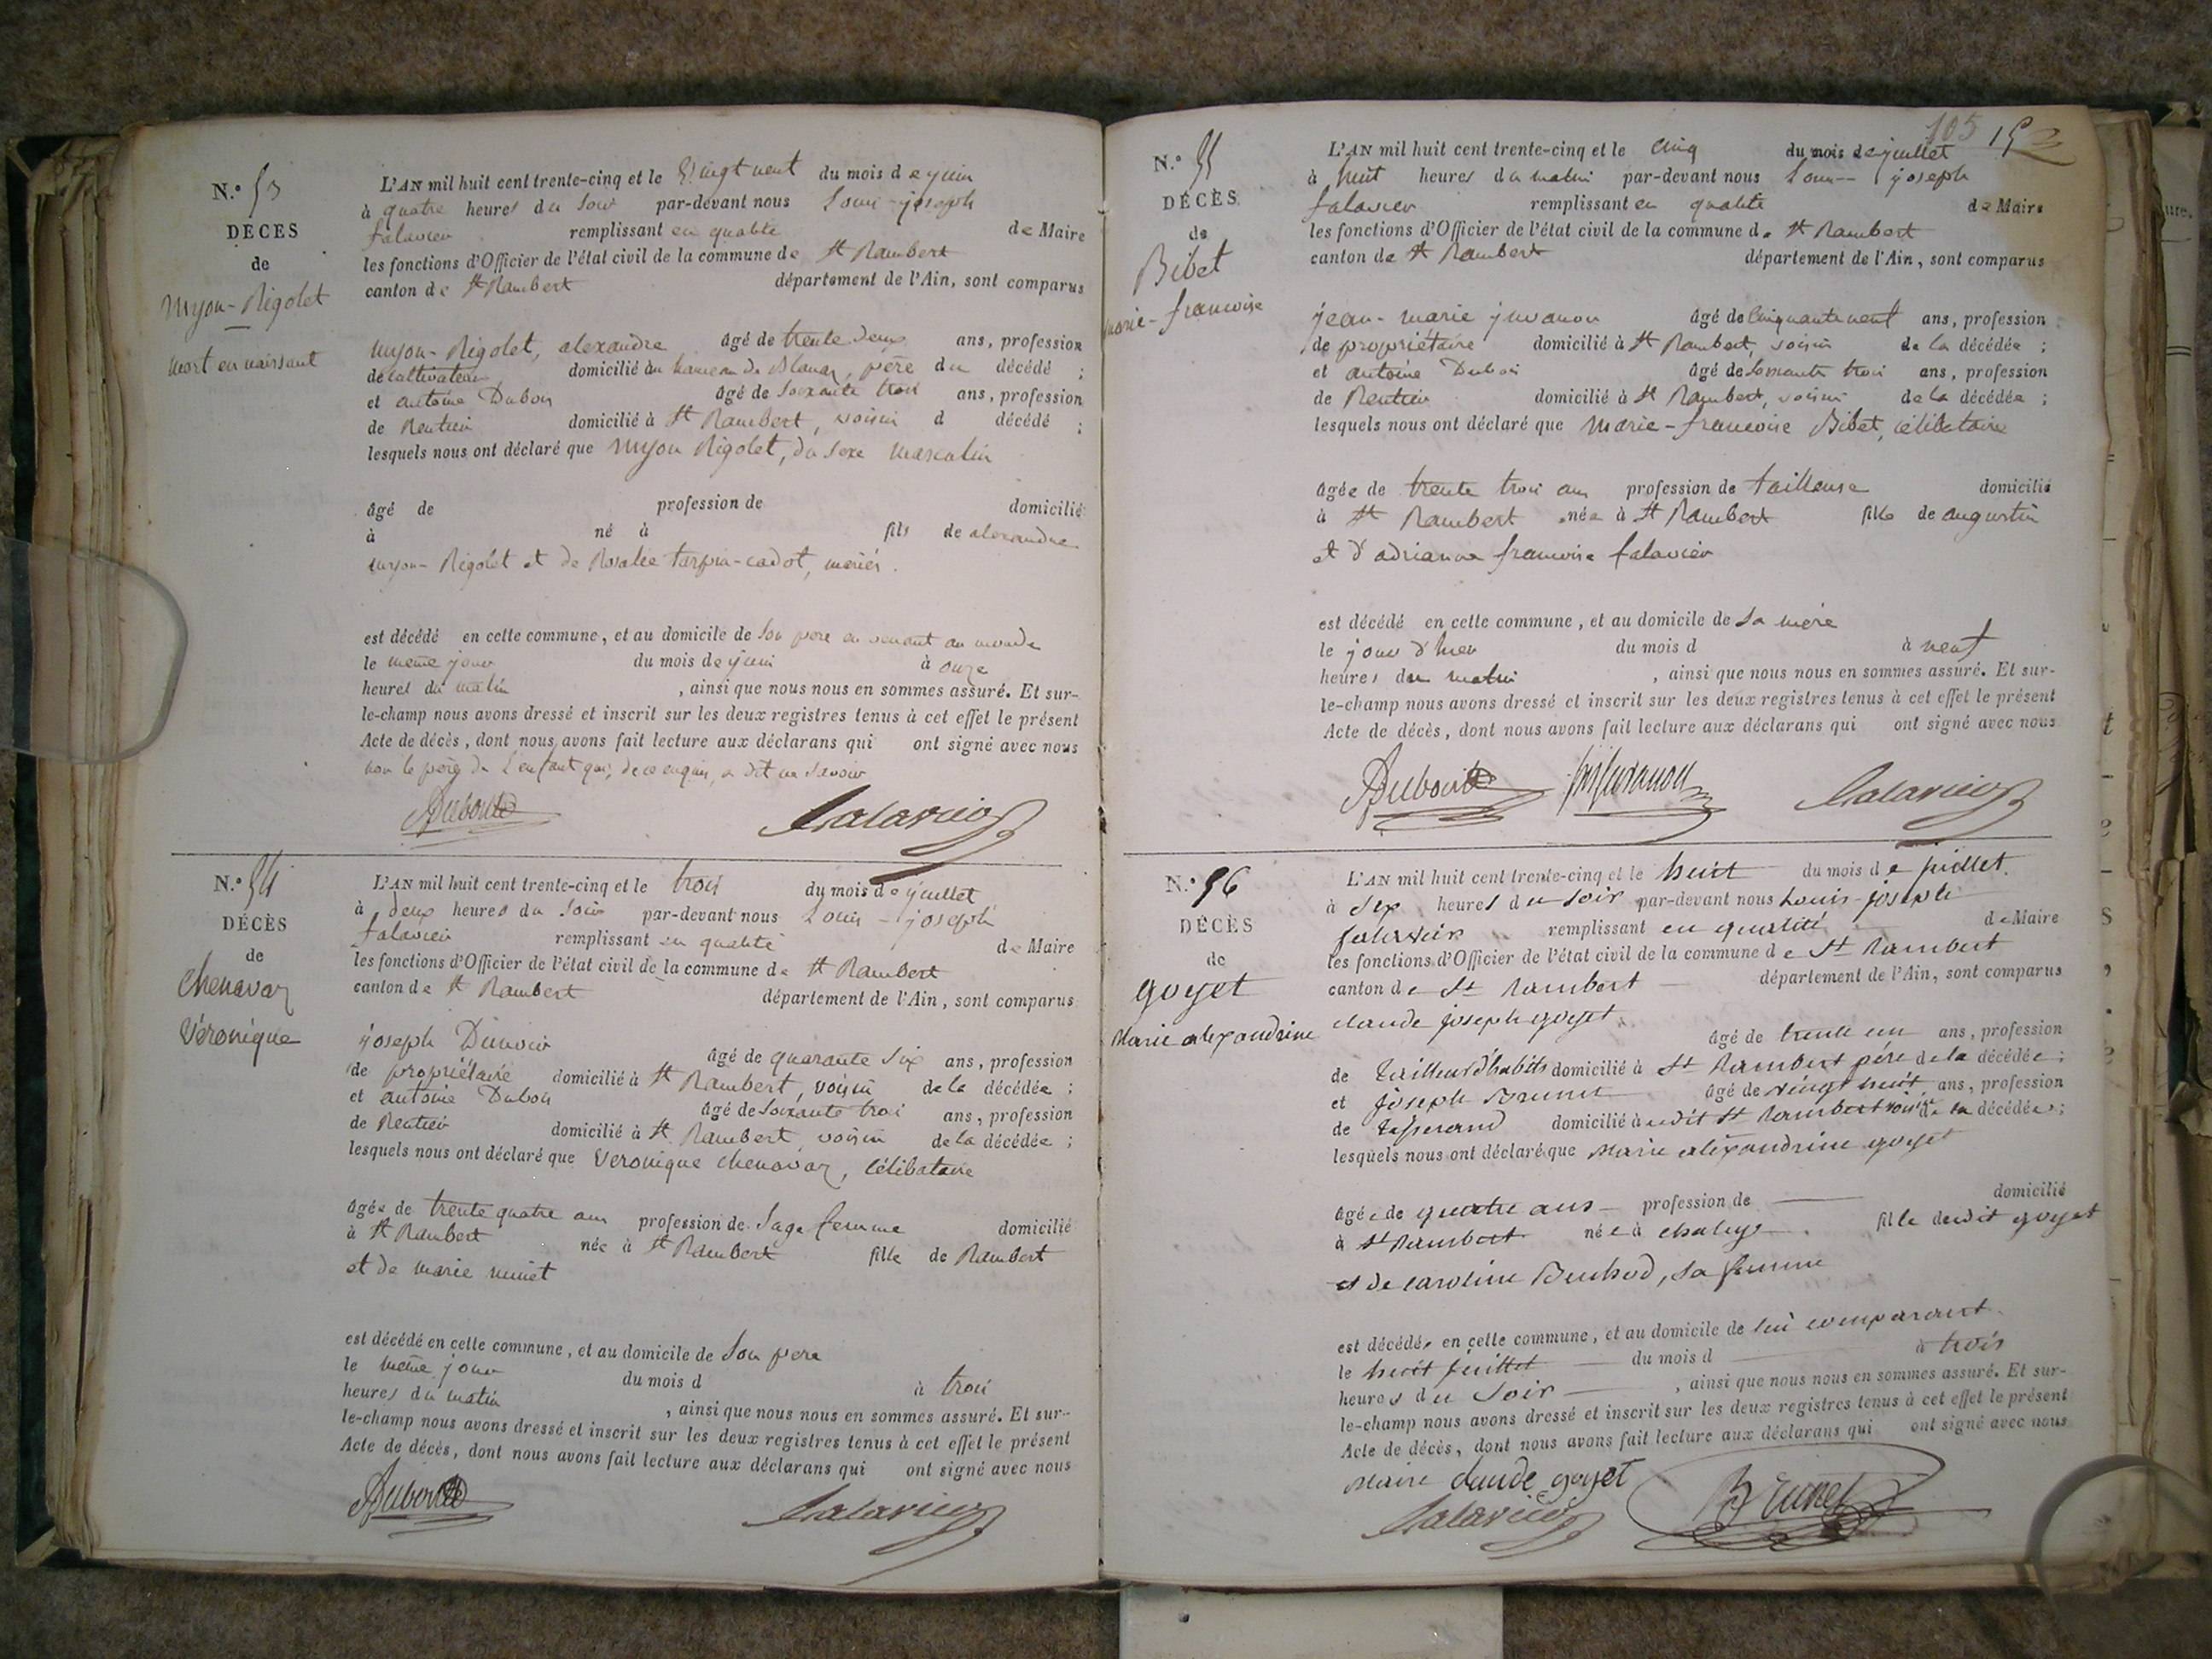 N.º 53
DÉCÈS
de
Myon-Rigolet
mort en naissant
L'AN mil huit cent trente-cinq et le vingt neuf du mois de juin
à quatre heures du soir par-devant nous Louis-joseph
falavier remplissant en qualité de Maire
les fonctions d'Officier de l'état civil de la commune de St Rambert
canton de St Rambert département de l'Ain, sont comparus
myon-Rigolet, alexandre âgé de trente deux ans, profession
de cultivateur domicilié au hameau de Blanaz, père du décédé ;
et antoine Dubois âgé de soixante trois ans, profession
de Rentier domicilié à St Rambert, voisin d décédé ;
lesquels nous ont déclaré que myon Rigolet, du sexe masculin
âgé de profession de domicilié
à né à fils de alexandre
myon-Rigolet et de Rosalie tarpin-cadot, mariés.
est décédé en cette commune, et au domicile de son père en venant au monde
le même jour du mois de juin à onze
heures du matin , ainsi que nous nous en sommes assuré. Et sur-
le-champ nous avons dressé et inscrit sur les deux registres tenus à cet effet le présent
Acte de décès, dont nous avons fait lecture aux déclarans qui ont signé avec nous
non le père de l'enfant qui, de ce enquis, a dit ne savoir
Dubois falavier
N.º 54
DÉCÈS
de
Chenavaz
Véronique
L'AN mil huit cent trente-cinq et le trois du mois de juillet
à deux heures du soir par-devant nous Louis-joseph
falavier remplissant en qualité de Maire
les fonctions d'Officier de l'état civil de la commune de St Rambert
canton de St Rambert département de l'Ain, sont comparus
joseph âgé de quarante six ans, profession
de propriétaire domicilié à St Rambert, voisin de la décédée ;
et antoine Dubois âgé de soixante trois ans, profession
de Rentier domicilié à St Rambert voisin de la décédée ;
lesquels nous ont déclaré que Veronique chenavaz, célibataire
âgée de trente quatre ans profession de Sage femme domicilié
à St Rambert née à St Rambert fille de Rambert
et de marie
est décédé en cette commune, et au domicile de son père
le même jour du mois d à trois
heures du matin , ainsi que nous nous en sommes assuré. Et sur-
le-champ nous avons dressé et inscrit sur les deux registres tenus à cet effet le présent
Acte de décès, dont nous avons fait lecture aux déclarans qui ont signé avec nous
Dubois falavier
105
N.º 55
DÉCÈS
de
Bibet
marie-francoise
L'AN mil huit cent trente-cinq et le cinq du mois de juillet
à huit heures du matin par-devant nous Louis-joseph
falavier remplissant en qualité de Maire
les fonctions d'Officier de l'état civil de la commune de St Rambert
canton de St Rambert département de l'Ain, sont comparus
jean-marie juvanon âgé de cinquante neuf ans, profession
de propriétaire domicilié à St Rambert, voisin de la décédée ;
et antoine Dubois âgé de soixante trois ans, profession
de Rentier domicilié à St Rambert, voisin de la décédée ;
lesquels nous ont déclaré que Marie-francoise Bibet, célibataire
âgée de trente trois ans profession de tailleuse domicilié
à St Rambert née à St Rambert fille de augustin
et d'adrianne francoise falavier
est décédé en cette commune, et au domicile de sa mère
le jour d'hier du mois d à neuf
heures du matin , ainsi que nous nous en sommes assuré. Et sur-
le-champ nous avons dressé et inscrit sur les deux registres tenus à cet effet le présent
Acte de décès, dont nous avons fait lecture aux déclarans qui ont signé avec nous
Dubois juvanon falavier
N.º 56
DÉCÈS
de
goyet
Marie alexandrine
L'AN mil huit cent trente-cinq et le huit du mois de juillet.
à six heures du soir par-devant nous Louis-joseph
falavier remplissant en qualité de Maire
les fonctions d'Officier de l'état civil de la commune de St Rambert
canton de St Rambert département de l'Ain, sont comparus
claude joseph goyet âgé de trente un ans, profession
de tailleur d'habits domicilié à St Rambert père de la décédée ;
et joseph Brunet âgé de vingt huit ans, profession
de tisserand domicilié à udit St Rambert voisin de la décédée ;
lesquels nous ont déclaré que Marie alexandrine goyet
âgée de quatre ans profession de domicilié
à St Rambert née à chaley fille dudit goyet
et de caroline Buchod, sa femme
est décédée en cette commune, et au domicile de lui comparant
le huit juillet du mois d à trois
heures du soir , ainsi que nous nous en sommes assuré. Et sur-
le-champ nous avons dressé et inscrit sur les deux registres tenus à cet effet le présent
Acte de décès, dont nous avons fait lecture aux déclarans qui ont signé avec nous
Maire Claude goyet Brunet
falavier